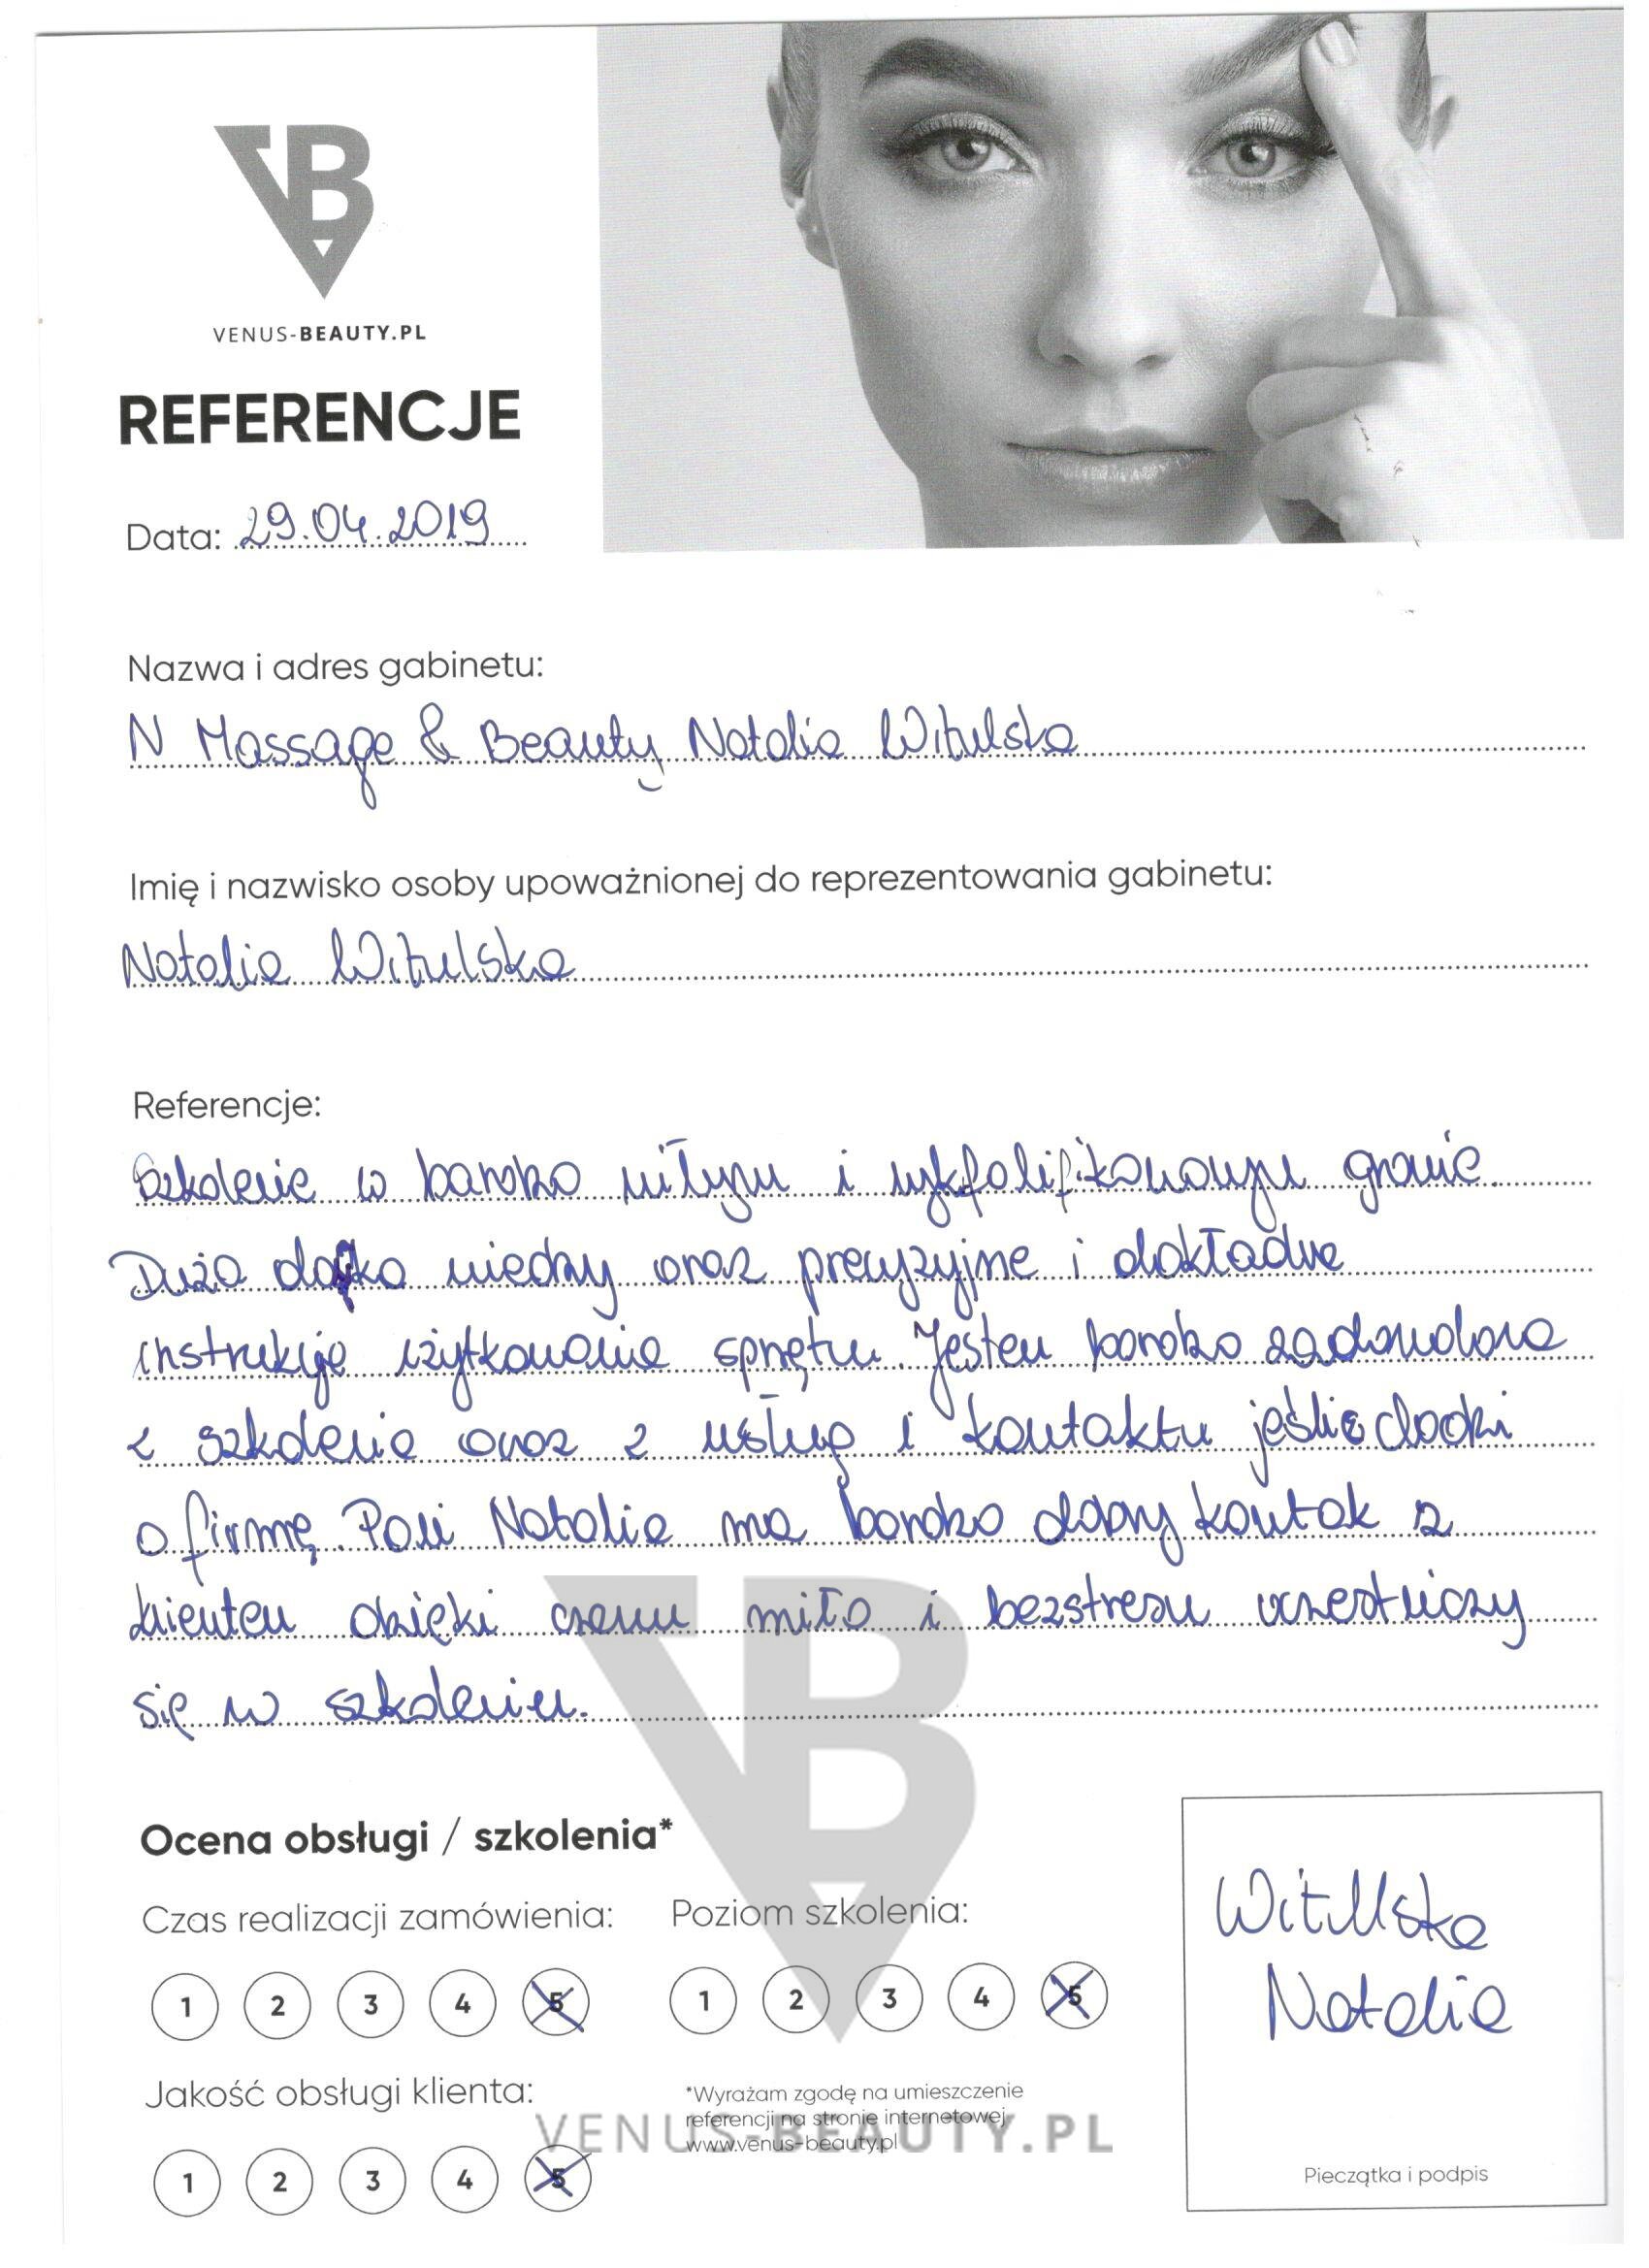 VB
VENUS-BEAUTY.PL
REFERENCJE
Data: 29.04.2019
Nazwa i adres gabinetu:
N Massage & Beauty Natalia Witulska
Imię i nazwisko osoby upoważnionej do reprezentowania gabinetu:
Natalia Witulska
Referencje:
Szkolenie w bardzo miłym i wykfalifikowanym gronie.
Duża dawka wiedzy oraz precyzyjne i dokładne
instrukcje użytkowania sprzętu. Jestem bardzo zadowolona
z szkolenia oraz z usług i kontaktu jeślie chodzi
o firmę. Pani Natalia ma bardzo dobry kontak z
klientem dzięki czemu miło i bezstresu uczestniczy
się w szkoleniu.
Ocena obsługi / szkolenia*
Czas realizacji zamówienia: Poziom szkolenia:
1 2 3 4 5 1 2 3 4 5
Jakość obsługi klienta:
1 2 3 4 5
*Wyrażam zgodę na umieszczenie
referencji na stronie internetowej
www.venus-beauty.pl
VENUS-BEAUTY.PL
Witulska
Natalia
Pieczątka i podpis